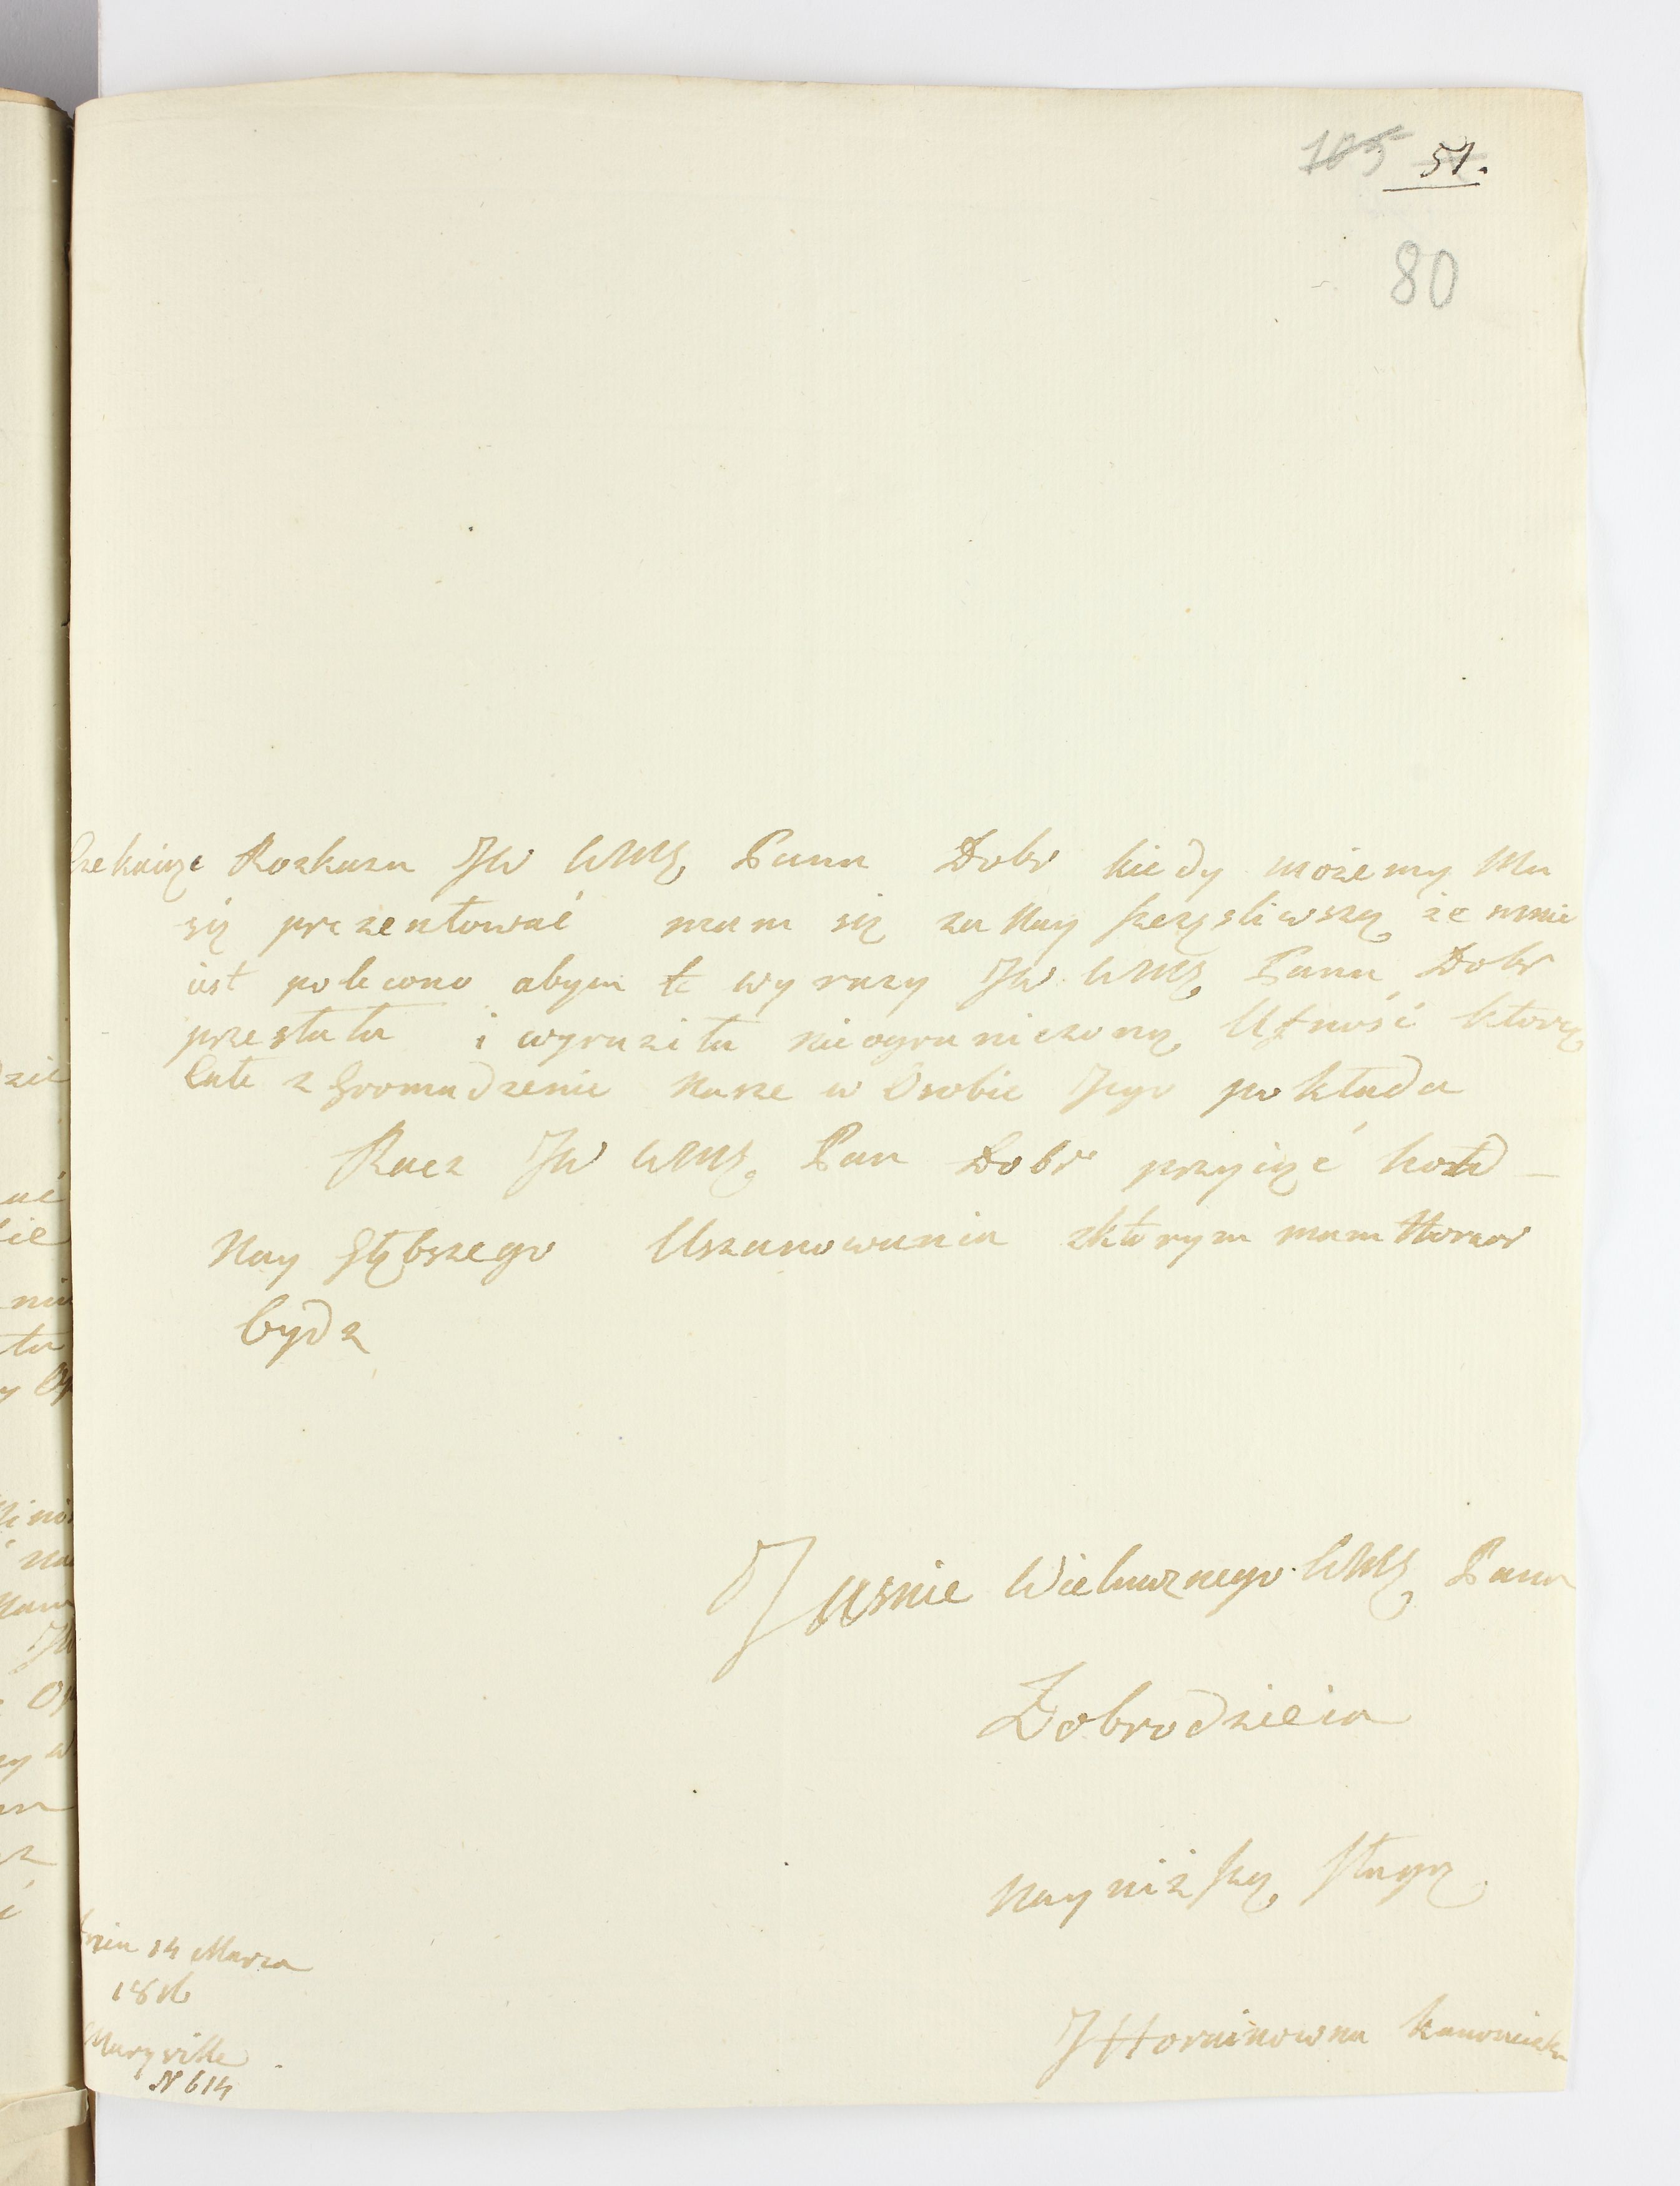 105 51.
80
Czekaiąc Rozkazu JW WMŚ Pana Dobr kiedy możemy Mu
się prezentować mam się za Nay szczęsliwszą że mnie
iest polecono abym te wyrazy JW WMŚ Panu Dobr
przesłała i wyraziła nieograniczoną Ufność którą
Całe zgromadzenie Nasze w Osobie Jego pokłada
Racz JW WMŚ Pan Dobr przyiąć hołd
Nay głębszego Uszanowania zktórym mam Honor
bydz
Jasnie Wielmoznego WMŚ Pana
Dobrodzieia
Nayniższą sługą
dnia 14 Marca
Maryville
N 614
J Horainowna Kanoniczka